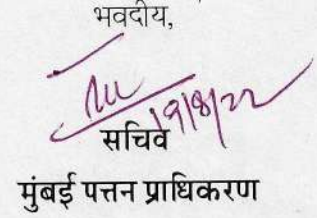 भवदीय,
19/8/22
सचिव
मुंबई पत्तन प्राधिकरण